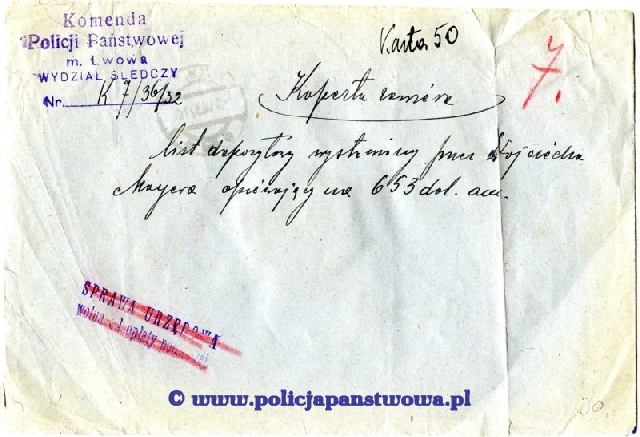 Komenda
Policji Państwowej
m. Lwowa
WYDZIAŁ ŚLEDCZY
Nr. K 7/36/32
Karta 50
7.
Koperta zawiera
list depozytowy wystawiony przez Wojciecha
Mayera opiewający na 653 dol. am.
SPRAWA URZĘDOWA
wolna od opłaty
© www.policjapanstwowa.pl